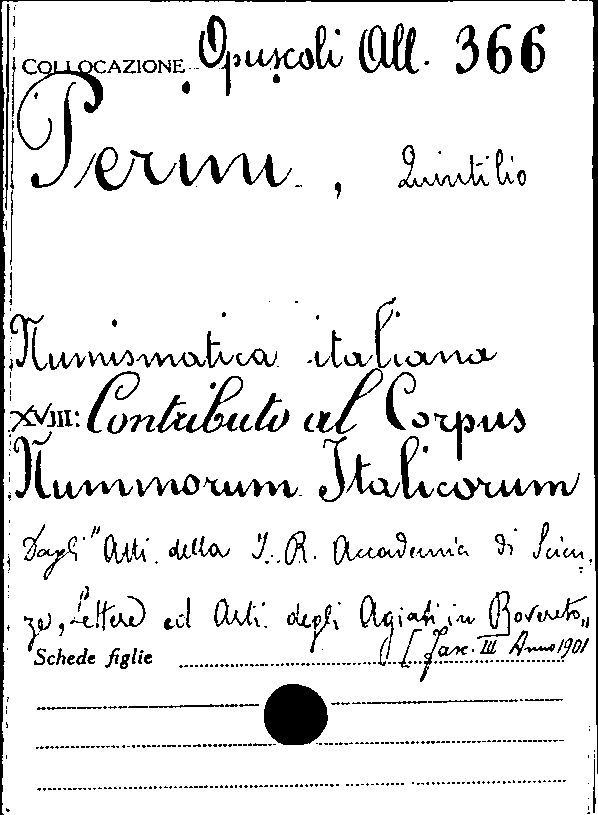 COLLOCAZIONE Opuscoli All. 366
Perini, Quintilio
Numismatica italiana
XVIII: Contributo al Corpus
Nummorum Italicorum
Dagli "Atti della I. R. Accademia di Scien-
ze, Lettere ed Arti degli Agiati in Rovereto„
Schede figlie [Fasc. III Anno 1901